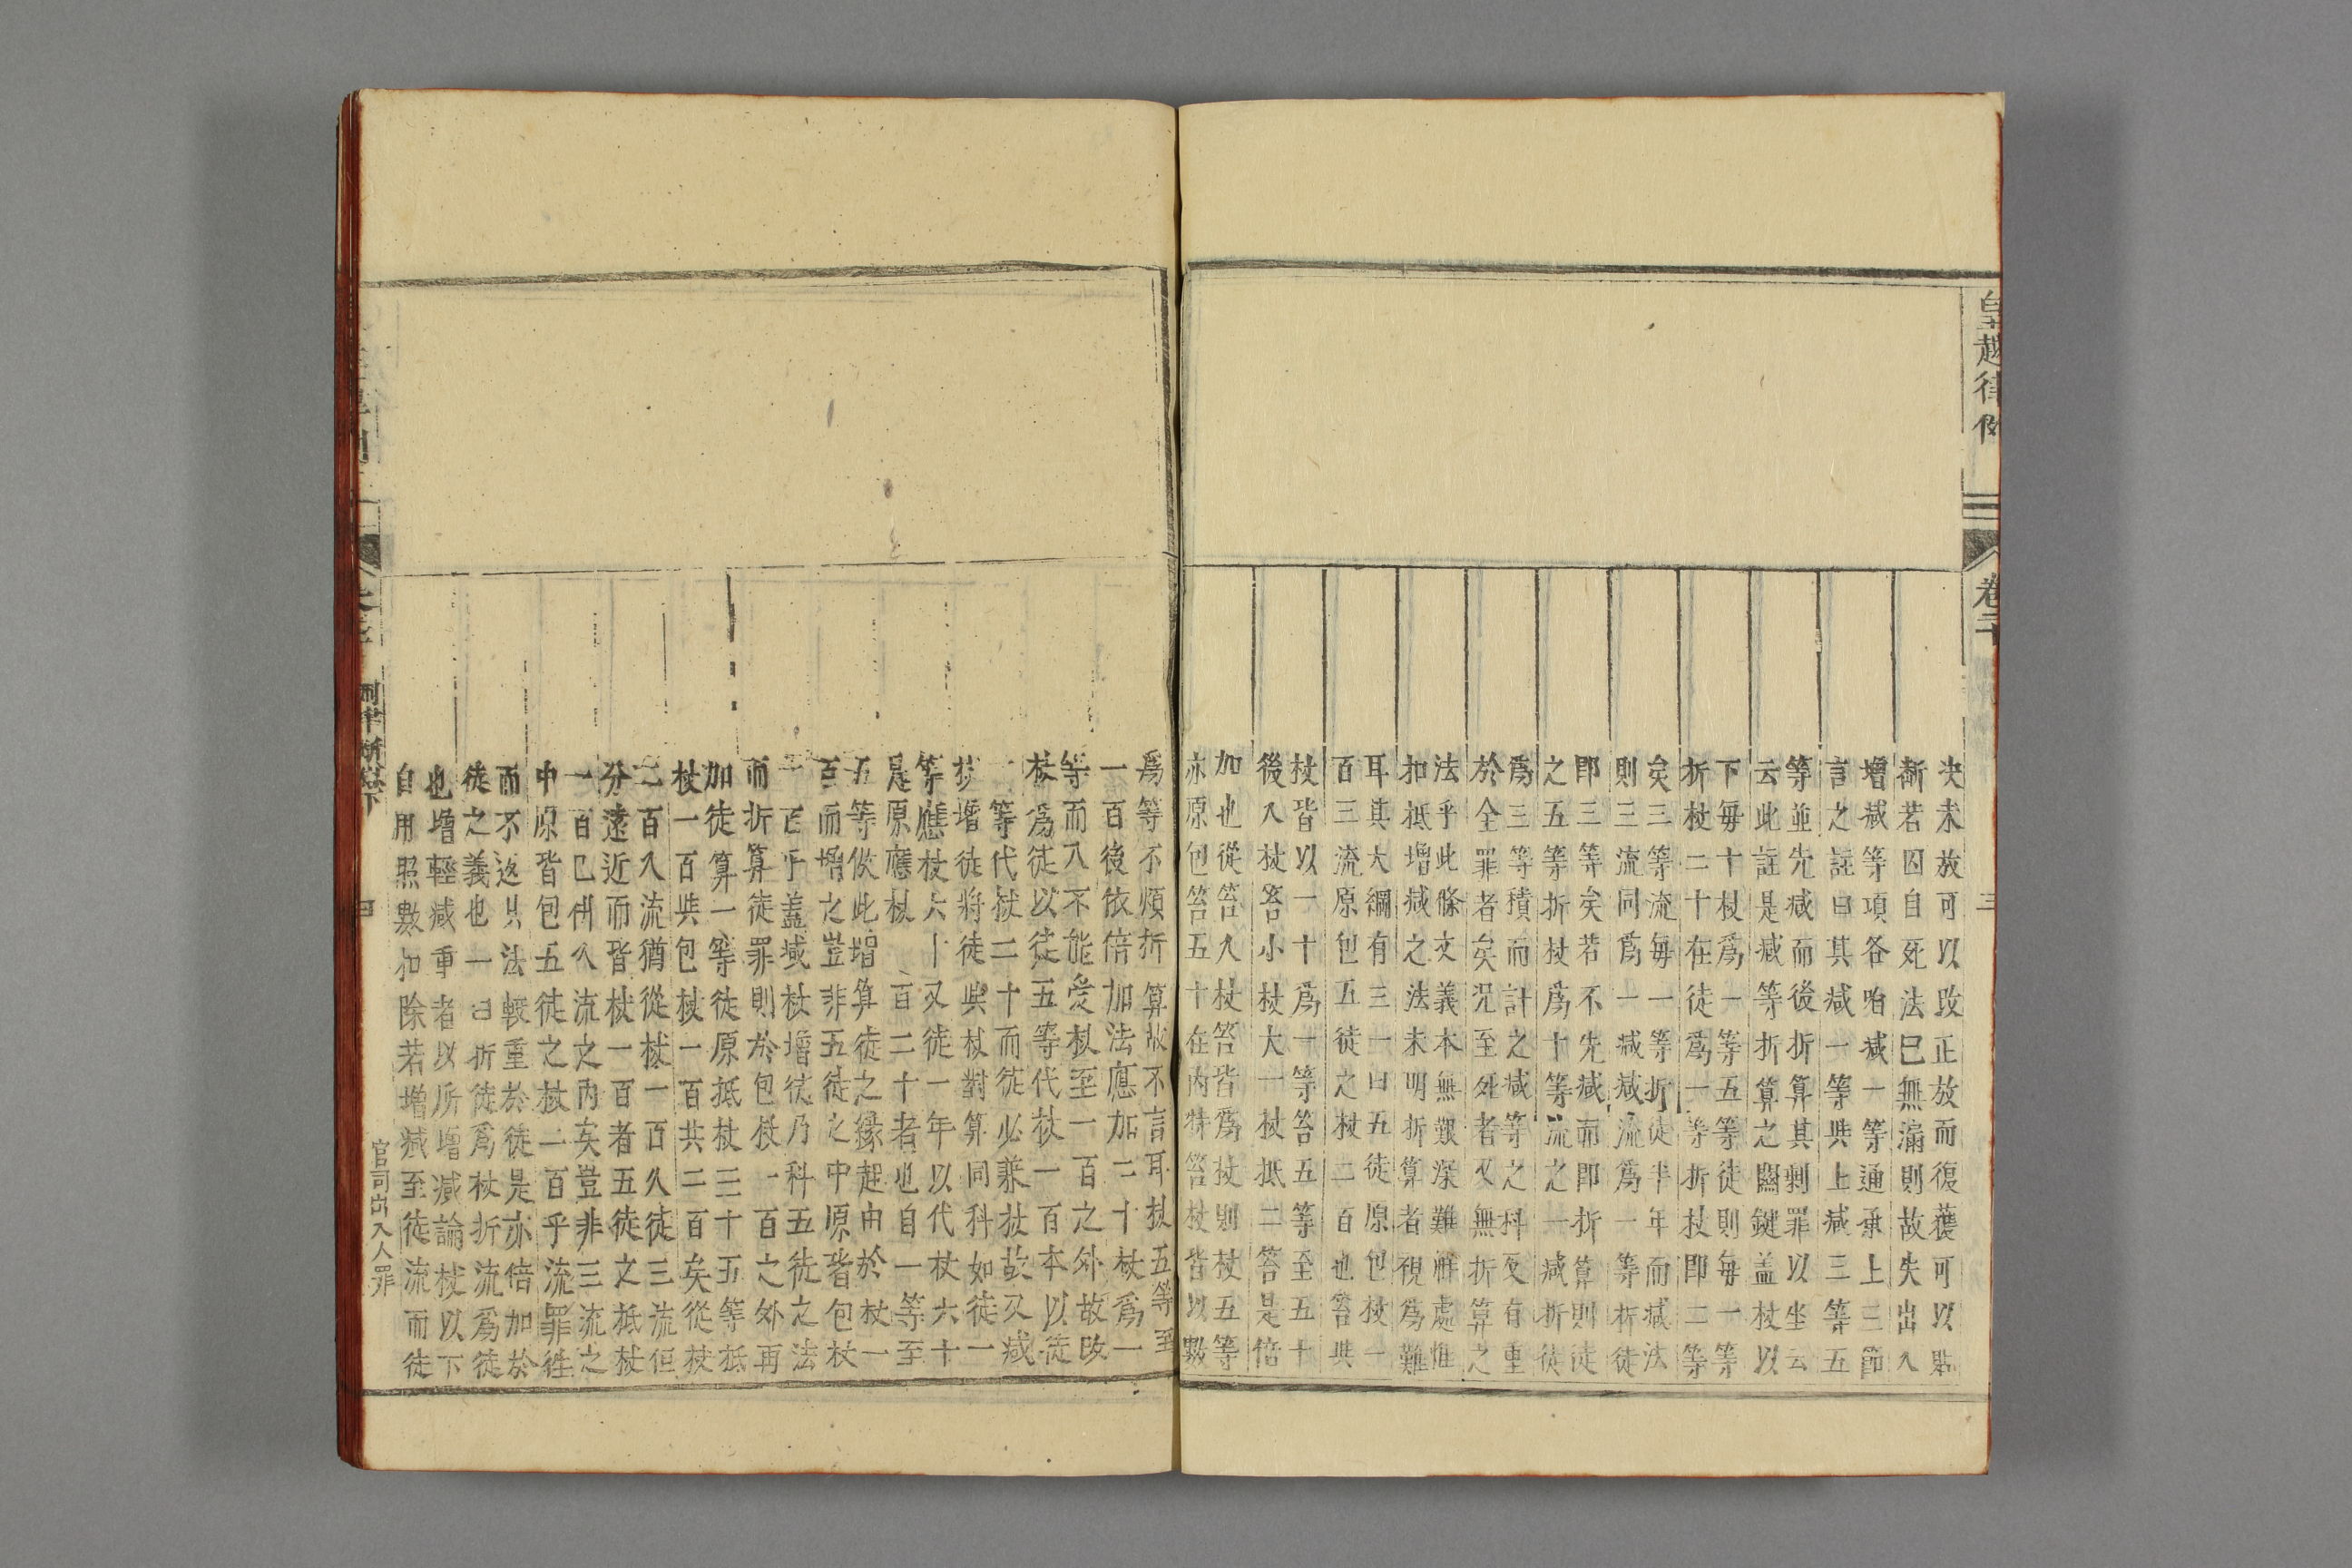 皇越律例
卷二十
三
决未放可以改正放而復獲可以貼
斷若囚自死法巳無漏則故失出入
增減等項各咱減一等通承上三節
言之註曰其減一等與上減三等五
等並先減而後折算其剩罪以坐云
云此註是減等折算之關鍵盖杖以
下毎十杖爲一等五等徒則毎一等
折杖二十在徒爲一等折杖即二等
矣三等流毎一等折徒半年而減法
則三流同爲一減減流爲一等折徒
即三等矣若不先減而即折算則徒
之五等折杖爲十等流之一減折徒
爲三等積而計之減等之科反有重
於全罪者矣况至死者又無折算之
法乎此條文義本無艱深難解處惟
扣抵增減之法未明折算者視爲難
耳其大綱有三一曰五徒原包杖一
百三流原包五徒之杖二百也笞與
杖皆以一十爲一等笞五等至五十
後入杖笞小杖大一杖抵二笞是倍
加也從笞入杖笞皆爲杖則杖五等
亦原包笞五十在內特笞杖皆以數
爲等不煩折算故不言耳杖五等至
一百後依倍加法應加二十杖爲一
等而入不能受杖至一百之外故改
杖爲徒以徒五等代杖一百本以徒
一等代杖二十而徒必兼杖故又減
杖增徒將徒與杖對算同科如徒一
等應杖六十又徒一年以代杖六十
是原應杖一百二十者也自一等至
五等倣此增算徒之緣起由於杖一
百而增之豈非五徒之中原皆包杖
一百乎盖減杖增徒乃科五徒之法
而折算徒罪則於包杖一百之外再
加徒算一等徒原抵杖二十五等抵
杖一百與包杖一百共二百矣從杖
一百入流猶從杖一百久徒三流但
分遠近而皆杖一百者五徒之抵杖
一百已併入流之內矣豈非三流之
中原皆包五徒之杖二百乎流罪徃
而不返其法較重於徒是亦倍加於
徒之義也一曰折徒爲杖折流爲徒
也增輕減重者以所增減論杖以下
自用照數扣除若增減至徒流而徒
刑律斷獄下
四
官司出入人罪